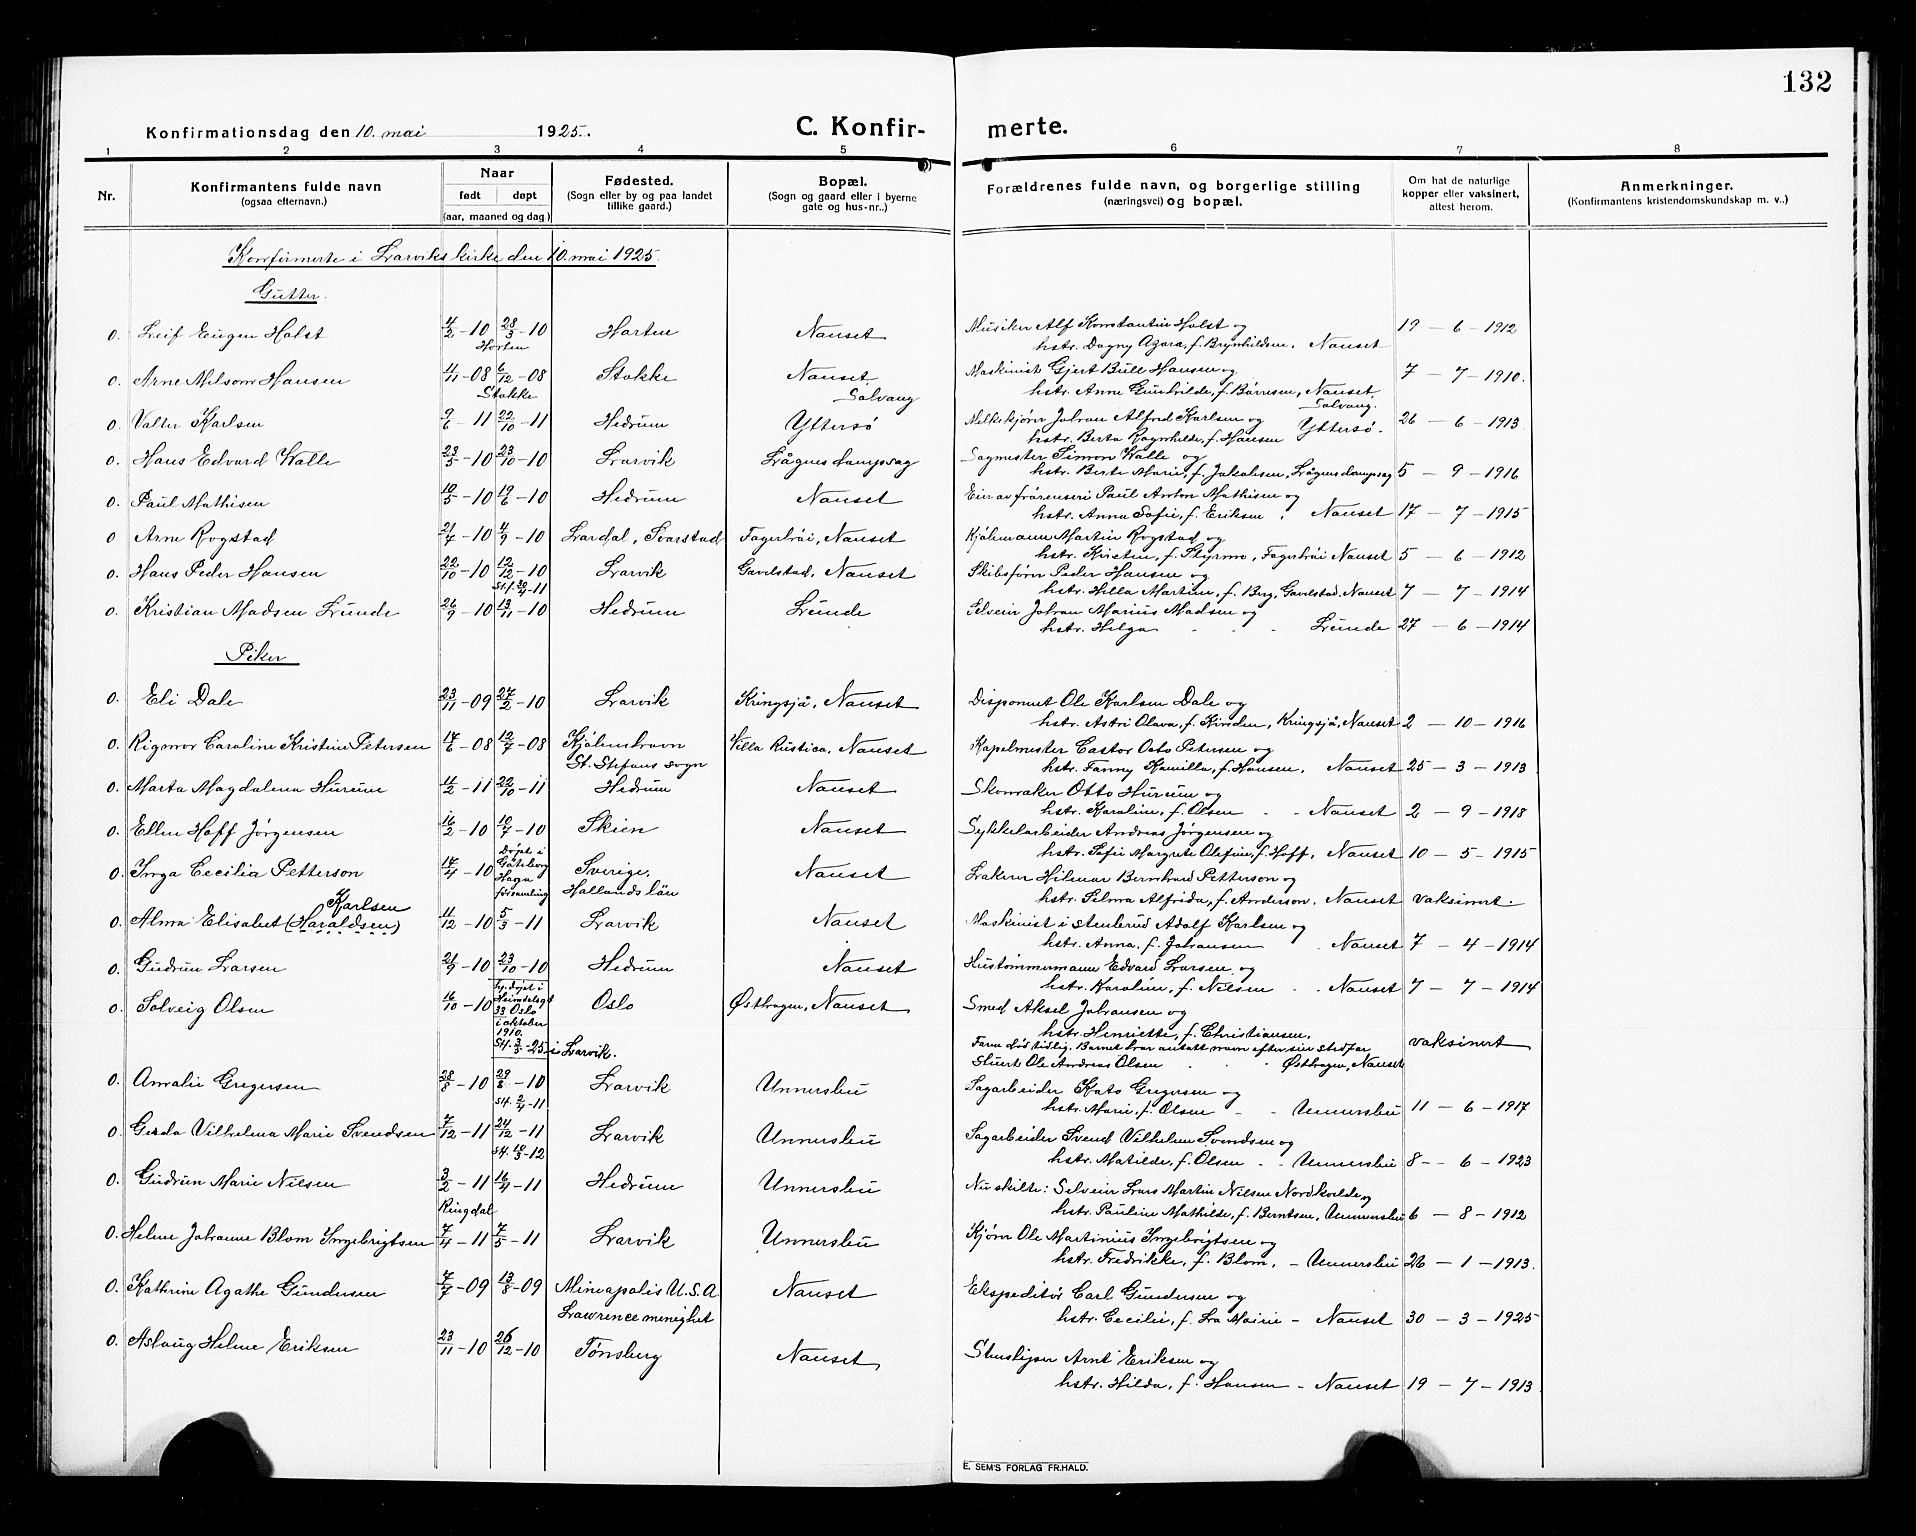 132
Konfirmationsdag den 10. mai 1925. C. Konfir- merte.
1 2 3 4 5 6 7 8
Nr.
Konfirmantens fulde navn
(ogsaa efternavn.)
Naar
født døpt
(aar, maaned og dag)
Fødested.
(Sogn eller by og paa landet
tillike gaard.)
Bopæl.
(Sogn og gaard eller i byerne
gate og hus-nr..)
Forældrenes fulde navn, og borgerlige stilling
(næringsvei) og bopæl.
Om hat de naturlige
kopper eller vaksinert,
attest herom.
Anmerkninger.
(Konfirmantens kristendomskundskap m. v..)
Konfirmerte i Larviks kirke den 10. mai 1925.
Gutter.
0. Leif Eugen Holst 4/2-10 28/3-10 Horten Nanset Musiker Alf Konstantin Holst og 19-6-1912
Horten hstr. Dagny Azora, f. Brynhildsen, Nanset
0. Arne Milsom Hansen 4/11-08 6/12-08 Stokke Nanset Maskinist Gjert Bull Hansen og 7-7-1910.
Stokke Solvang hstr. Anne Gunhilde, f. Børresen, Nanset,
Solvang.
0. Valter Karlsen 9/6-11 22/10-11 Hedrum Yttersø Melkekjører Johan Alfred Karlsen og 26-6-1913
hstr. Berta Ragnhilde, f. Hansen Yttersø.
0. Hans Edvard Walle 23/5-10 23/10-10 Larvik Lågens dampsag Sagmester Simon Walle og
hstr. Berte Marie, f. Jakobsen, Lågens dampsag 5-9-1916
0. Paul Mathisen 10/5-10 19/6-10 Hedrum Nanset Eier av frørenseri Paul Anton Mathisen og
hstr. Anna Sofie, f. Eriksen, Nanset 17-7-1915
0 Arne Rogstad 21/7-10 4/9-10 Lardal, Svarstad Fagerløi, Nanset Kjølemann Martin Rogstad og
hstr. Kirsten, f. Styrmo, Fagerløi Nanset 5-6-1912
0. Hans Peder Hansen 22/10-10 12/12-10 Larvik Gavelstad, Nanset Skibsfører Peder Hansen og
st. 30/4-11 hstr. Hilla Martine, f. Berg, Gavelstad, Nanset 7-7-1914
0. Kristian Madsen Lunde 26/9-10 13/11-10 Hedrum Lunde Selveier Johan Marius Madsen og
hstr. Helga - - - Lunde 27-6-1914
Piker
0. Eli Dale 23/11-09 27/2-10 Larvik Kringsjå, Nanset Disponent Ole Karlsen Dale og
hstr. Astri Olava, f. Kinden, Kringsjå, Nanset 2-10-1916
0. Rigmor Caroline Kristine Petersen 17/6-08 12/7-08 Kjøbenhavn Villa Rustica, Nanset Kapelmester Castor Osto Petersen og
St. Stefans sogn hstr. Fanny Kamilla, f. Hansen, Nanset 25-3-1913
0. Marta Magdalena Hurum 4/2-11 22/10-11 Hedrum Nanset Skomaker Otto Hurum og
hstr. Karoline, f. Olsen - - Nanset 2-9-1918
0. Ellen Hoff Jørgensen 16/2-10 10/7-10 Skien Nanset Sykkelarbeider Andreas Jørgensen og
hstr. Sofie Margrete Olefine, f. Hoff, Nanset 10-5-1915
0. Inga Cecilia Petterson 17/4-10 Døpt i
Gøteborg
Haga
forsamling Sverige, Nanset Lakerer Hilmar Bernhard Petterson og
Hallands län hstr. Selma Alfrida, f. Anderson, Nanset vaksinert.
Karlsen
0. Alma Elisabet (Haraldsen) 4/12-10 5/3-11 Larvik Nanset Maskinist i stenbrud Adolf Karlsen og
hstr. Anna, f. Johansen - Nanset 7-4-1914
0. Gudrun Larsen 21/9-10 23/10-10 Hedrum Nanset Hustømmermann Edvard Larsen og
hstr. Karoline, f. Nilsen - - Nanset 7-7-1914
0. Solveig Olsen 16/10-10 Hj.døpt i
Heimdalsgt
33 Oslo
i oktober
1910.
st. 3/5-25 i Larvik. Oslo Østhagen, Nanset Smed Aksel Johansen og
hstr. Henriette, f. Christiansen,
Faren død tidlig. Barnet har antatt navn efter sin stedfar vaksinert
Stuert Ole Andreas Olsen - - Østhagen, Nanset
0. Amalie Gregersen 28/8-10 29/8-10 Larvik Unnersbu Sagarbeider Kato Gregersen og
st. 2/4-11 hstr. Marie, f. Olsen - - Unnersbu 11-6-1917
0. Gerda Vilhelma Marie Svendsen 7/12-11 24/12-11 Larvik Unnersbu Sagarbeider Svend Vilhelm Svendsen og
st. 10/3-12 hstr. Matilde, f. Olsen - - Unnersbu 8-6-1923
0. Gudrun Marie Nilsen 3/2-11 16/4-11 Hedrum Unnersbu Nu skilte: Selveier Lars Martin Nilsen Nordkvelde og
Ringdal hstr. Pauline Mathilde, f. Berntsen, Unnersbu 6-8-1912
0. Helene Johanne Blom Ingebrigtsen 7/4-11 7/5-11 Larvik Unnersbu Kjører Ole Martinius Ingebrigtsen og
hstr. Fredrikke, f. Blom, - Unnersbu 26-1-1913.
0. Kathrine Agathe Gundersen 7/7-09 13/8-09 Mineapolis U.S.A Nanset Ekspeditør Carl Gundersen og
Lawrence menighet hstr. Cecilie, f. La Mairie - Nanset 30-3-1925
0. Aslaug Helene Eriksen 23/11-10 26/12-10 Tønsberg Nanset Stensliper Arnt Eriksen og
hstr. Hilda, f. Hansen - Nanset 19-7-1913
E. SEM'S FORLAG FR.HALD.